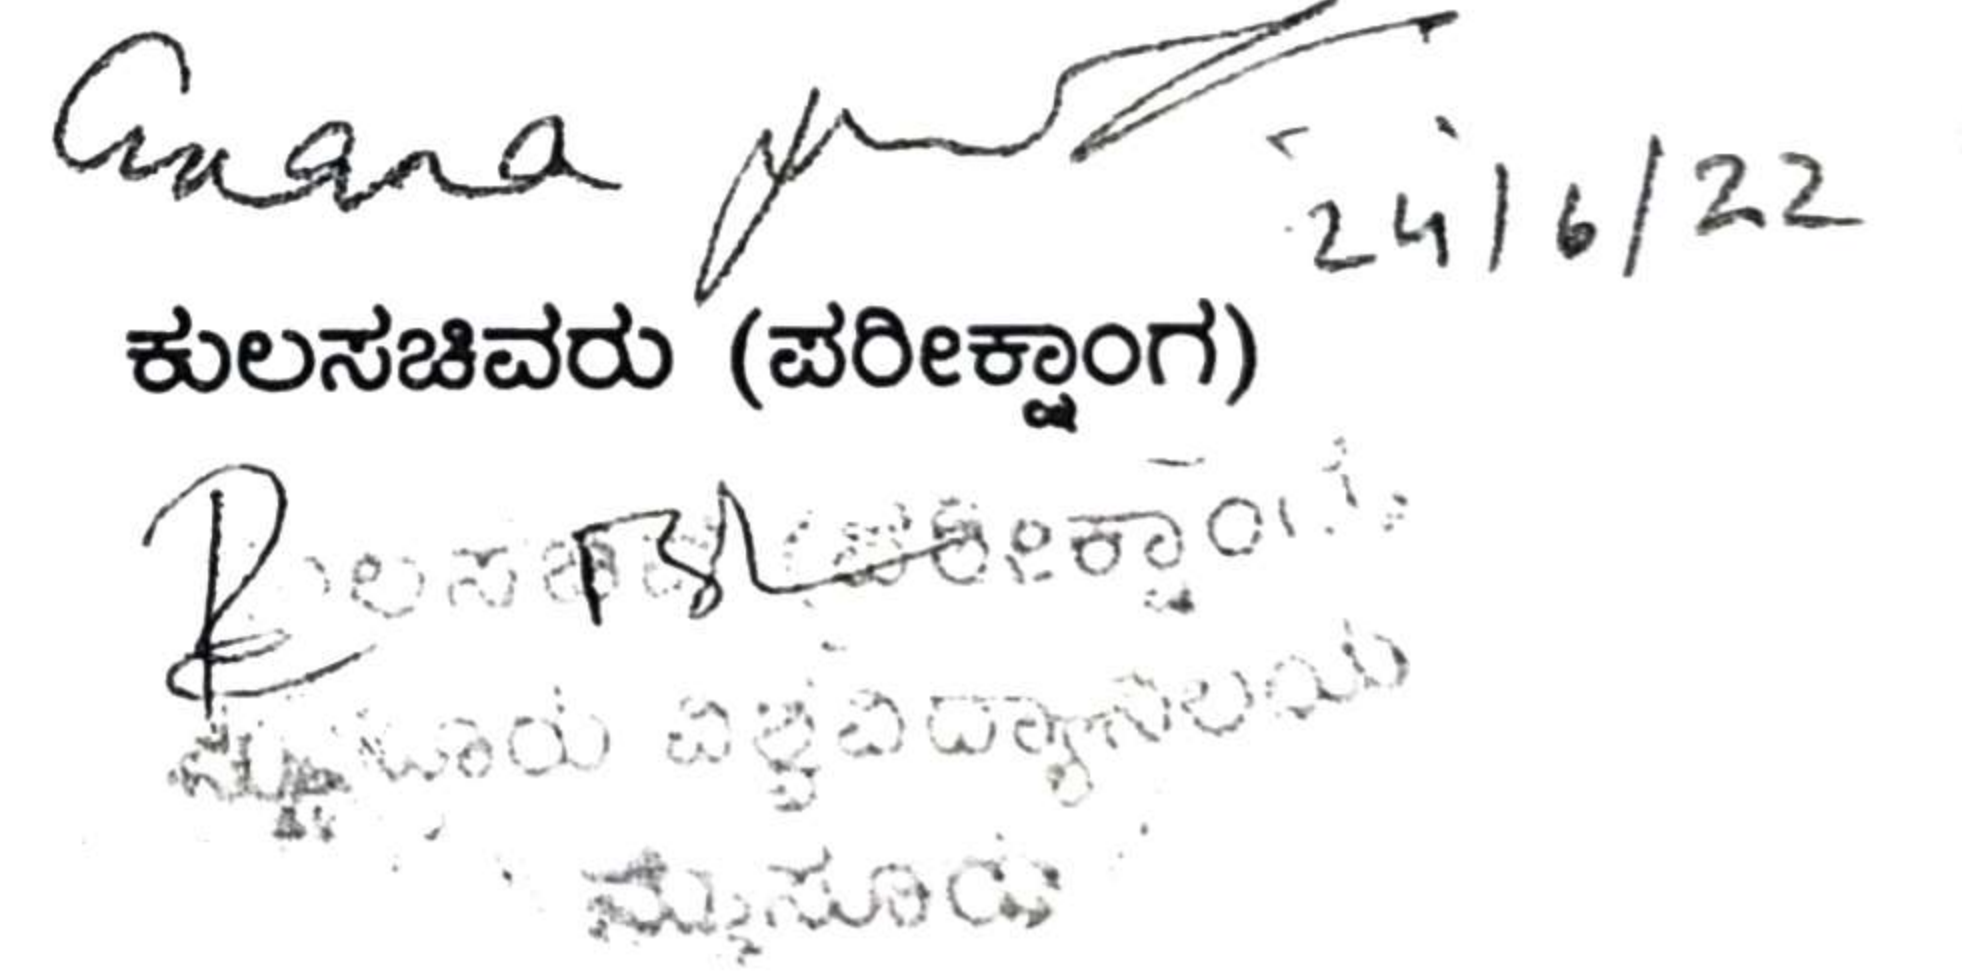 24/6/22
ಕುಲಸಚಿವರು (ಪರೀಕ್ಷಾಂಗ)
ಕುಲಸಚಿವ (ಪರೀಕ್ಷಾಂಗ)
ಮೈಸೂರು ವಿಶ್ವವಿದ್ಯಾನಿಲಯ
ಮೈಸೂರು